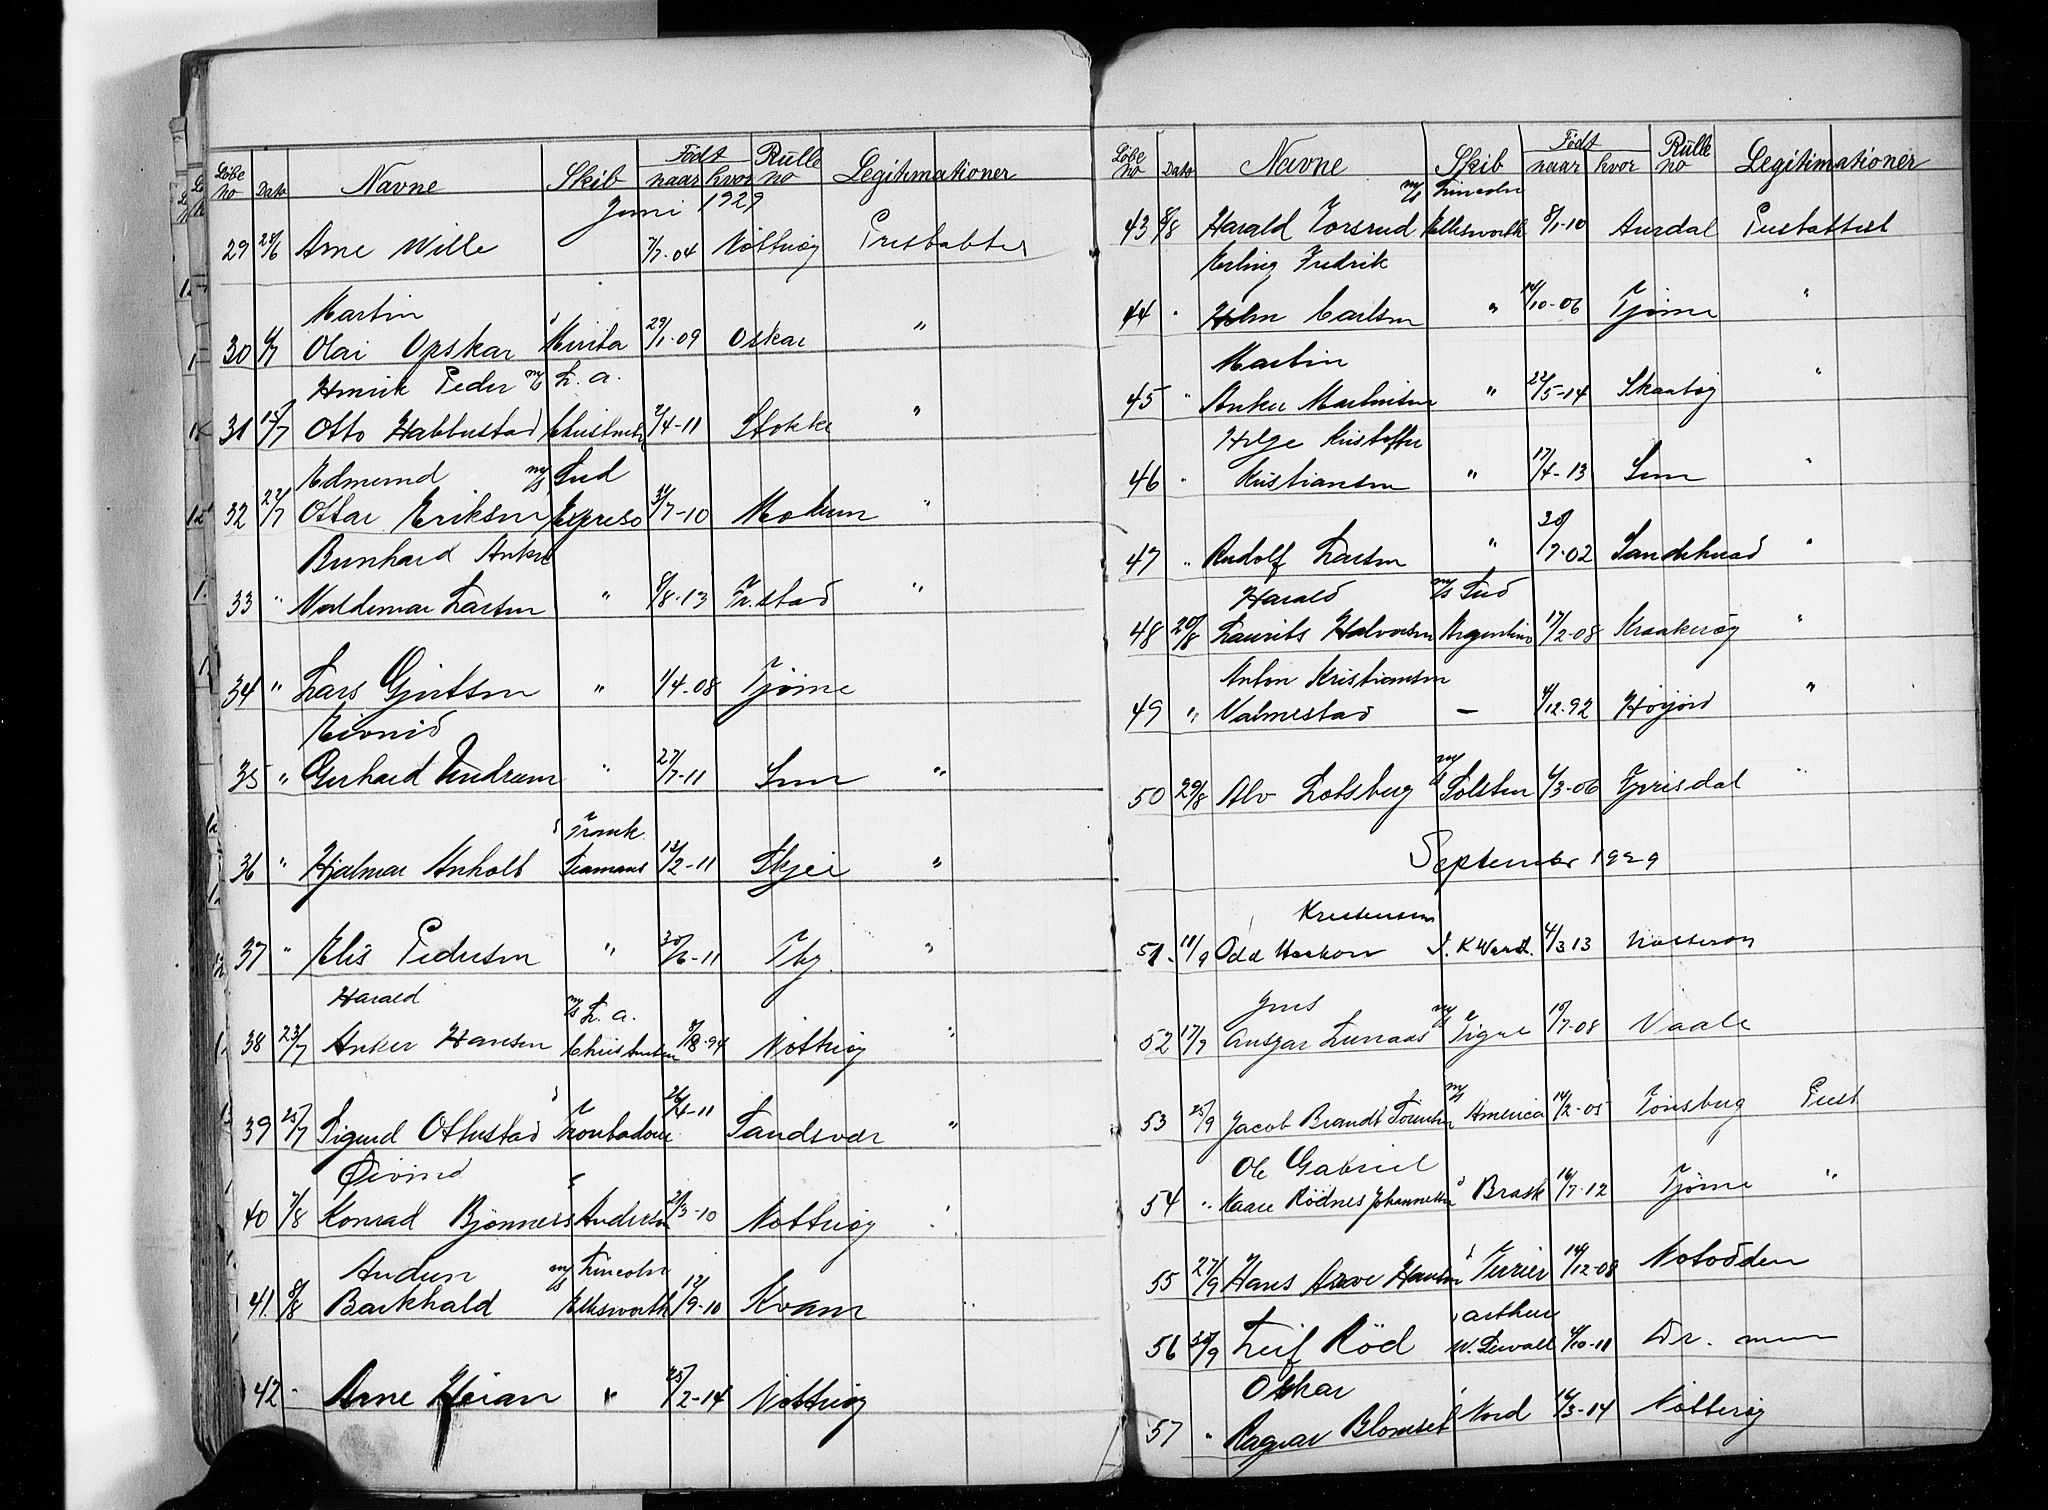 Løbe no Dato Navne Skib Født naar hvor Rulle no Legitimationer
Juni 1929
29 28/6 Arne Wille 7/7-04 Nøtterøy Prestattest
Martin
30 6/7 Olai Opskar Mirita 29/1-09 Oskar "
Henrik Peder m/s L. A.
31 15/7 Otto Habbestad Christensen 2/4-11 Stokke "
Edmund m/s Sud
32 22/7 Ottar Eriksen Expreso 31/7-10 Modum "
Bernhard Anker
33 " Valdemar Larsen " 8/8-13 Fr.stad "
34 " Lars Gjertsen " 1/4-08 Tjøme
Eivind
35 " Gerhard Undrum " 27/7-11 Sem "
Frank
36 " Hjalmar Anholt Seamans 12/2-11 Skjei "
37 " Elis Pedersen " 30/6-11 Thy "
Harald m/s L. A.
38 23/7 Anker Hansen Christensen 5/8-94 Nøtterøy "
39 25/7 Sigurd Ottestad Troubadour 26/4-11 Sandsvær "
Øivind
40 7/8 Konrad Bjønness Anderson 21/3-10 Nøtterøy "
Audun m/s Lincoln
41 8/8 Barkhald Ellsworth 12/9-10 Kvam "
42 - Arne Heian " 25/2-14 Nøtterøy
Løbe no Dato Navne Skib Født naar hvor Rulle no Legitimationer
m/s Lincoln
43 8/8 Harald Torsrud Ellesworth 8/1-10 Aurdal Prestattest
Erling Fredrik
44 " Holm Carlsen " 14/10-06 Tjøme "
Martin
45 " Anker Martinsen " 22/5-14 Skaatøy "
Helge Kristoffer
46 " Kristiansen " 17/4-13 Sem "
47 " Rudolf Larsen " 30/7-02 Sandeherad "
Harald m/s Sud
48 20/8 Laurits Halvorsen Argentino 17/2-08 Kraakerøy "
Anton Kristiansen
49 " Valmestad — 4/12-92 Høyjord "
50 29/8 Alv Lotsberg m/s Solsten 6/3-06 Fyrisdal "
September 1929
Kristensen
51. 11/9 Odd Haakon J. K Ward. 4/3 13 Nøtterøy
Jens
52 17/9 Ansgar Lunaas m/s Tigre 10/7-08 Vaale
53 25/9 Jacob Brandt Sørensen m/s America 14/2-05 Tønsberg Prest
Ole Gabriel
54 " Kaare Rødnes Johannessen Brask 16/7-12 Tjøme "
55 27/9 Hans Arve Hansen Terrier 14/12-08 Notodden
Arthur
56 30/9 Leif Rød W. Sewall 4/10-11 Dr. men
Oskar
57 " Ragnar Blomset Nord 16/3-14 Nøtterøy